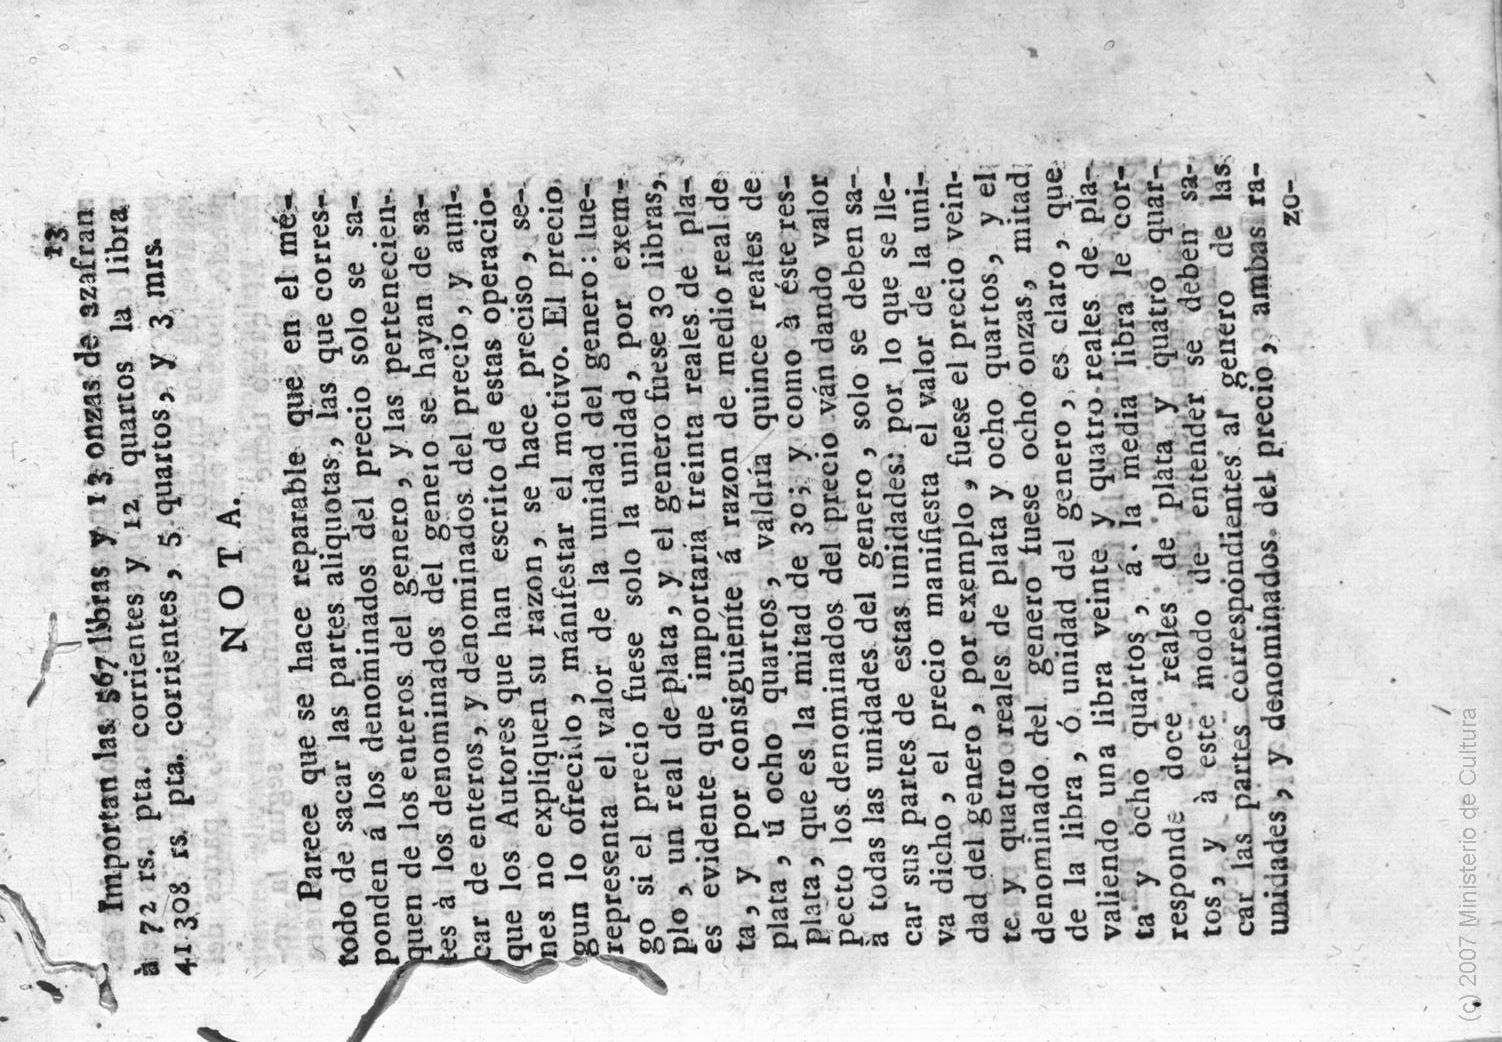 13
Importan las 567 libras y 13 onzas de azafran
à 72 rs. pta. corrientes y 12 quartos la libra
41308 rs pta. corrientes, 5 quartos, y 3 mrs.
NOTA.
Parece que se hace reparable que en el mé-
todo de sacar las partes aliquotas, las que corres-
ponden á los denominados del precio solo se sa-
quen de los enteros del genero, y las pertenecien-
tes à los denominados del genero se hayan de sa-
car de enteros, y denominados del precio, y aun-
que los Autores que han escrito de estas operacio-
nes no expliquen su razon, se hace preciso, se-
gun lo ofrecido, mánifestar el motivo. El precio
representa el valor de la unidad del genero: lue-
go si el precio fuese solo la unidad, por exem-
plo, un real de plata, y el genero fuese 30 libras,
es evidente que importaria treinta reales de pla-
ta, y por consiguiente á razon de medio real de
plata, ú ocho quartos, valdría quince reales de
plata, que es la mitad de 30; y como à éste res-
pecto los denominados del precio ván dando valor
à todas las unidades del genero, solo se deben sa-
car sus partes de estas unidades: por lo que se lle-
va dicho, el precio manifiesta el valor de la uni-
dad del genero, por exemplo, fuese el precio vein-
te y quatro reales de plata y ocho quartos, y el
denominado del genero fuese ocho onzas, mitad
de la libra, ó unidad del genero, es claro, que
valiendo una libra veinte y quatro reales de pla-
ta y ocho quartos, á la media libra le cor-
responde doce reales de plata y quatro quar-
tos, y à este modo de entender se deben sa-
car las partes correspondientes al genero de las
unidades, y denominados del precio, ambas ra-
zo-
(c) 2007 Ministerio de Cultura